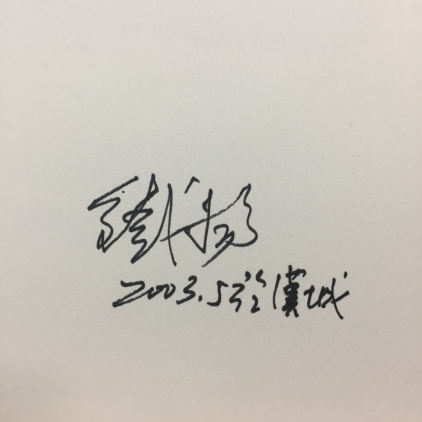 鐵揚
2003.5於漢城